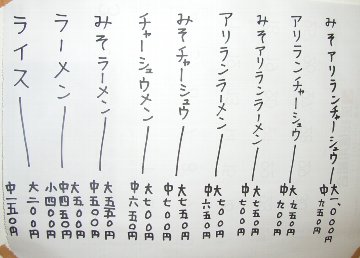 みそアリランチャーシュウ 大一、〇〇〇円 中九五〇円
アリランチャーシュウ 大九五〇円 中九〇〇円
みそアリランラーメン 大七五〇円 中七〇〇円
アリランラーメン 大七〇〇円 中六五〇円
みそチャーシュウ 大七五〇円 中七〇〇円
チャーシュウメン 大七〇〇円 中六五〇円
みそラーメン 大五五〇円 中五〇〇円
ラーメン 大五〇〇円 中四五〇円 小四〇〇円
ライス 大二〇〇円 中一五〇円